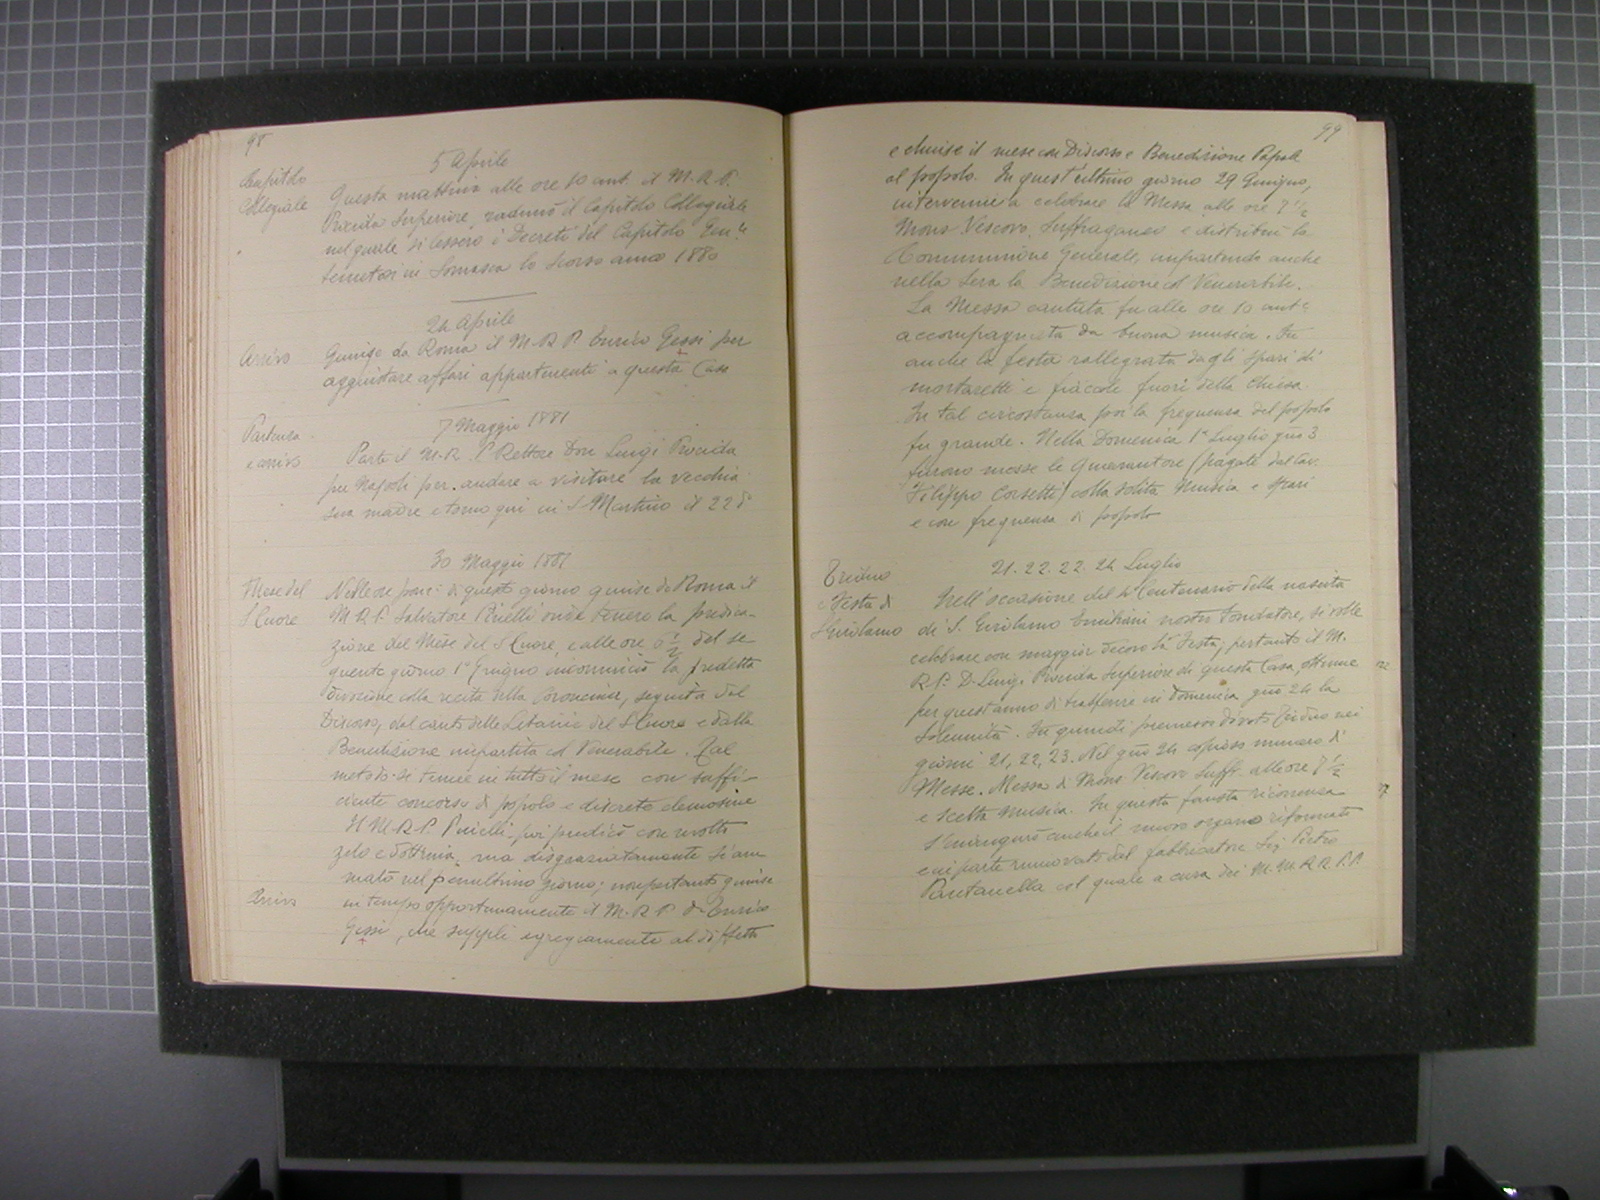 98
5 Aprile
Capitolo
Collegiale
Questa mattina alle ore 10 ant. il M. R. P.
Procida Superiore, radunò il Capitolo Collegiale
nel quale si lessero i Decreti del Capitolo Gen.le
tenutosi in Somasca lo scorso anno 1880
24 Aprile
Arrivo
Giunge da Roma il M. R. P. Enrico Gessi per
aggiustare affari appartenenti a questa Casa
7 Maggio 1881
Partenza
e arrivo
Parte il M. R. P. Rettore Don Luigi Procida
per Napoli per andare a visitare la vecchia
sua madre e torna qui in S. Martino il 22 d°
30 Maggio 1881
Mese del
S. Cuore
Nelle ore pom: di questo giorno giunse da Roma il
M. R. P. Salvatore Pirelli onde tenere la predica-
zione del Mese del S. Cuore, e alle ore 6 1/2 del se
guente giorno 1° Giugno incominciò la predetta
divozione colla recita della Coroncina, seguita dal
Discorso, dal canto delle Litanie del S. Cuore e dalla
Benedizione impartita col Venerabile. Tal
metodo si tenne in tutto il mese con suffi-
ciente concorso di popolo e discrete elemosine
Il M. R. P. Pirelli poi predicò con molto
zelo e dottrina, ma disgraziatamente si am
malò nel penultimo giorno; nonpertanto giunse
Arrivo
in tempo opportunamente il M. R. P. D. Enrico
Gessi, che supplì egregiamente al difetto
99
e chiuse il mese con Discorso e Benedizione Papale
al popolo. In quest'ultimo giorno 29 Giugno,
intervenne a celebrare la Messa alle ore 7 1/2
Mons. Vescovo Suffraganeo e distribuì la
Communione Generale, impartendo anche
nella sera la Benedizione col Venerabile.
La Messa cantata fu alle ore 10 ant.e
accompagnata da buona musica. Fu
anche la festa rallegrata dagli spari di
mortaretti e fiaccole fuori della Chiesa.
In tal circostanza poi la frequenza del popolo
fu grande. Nella Domenica 1a Luglio gno 3
furono messe le Quarantore (pagate dal Cav.
Filippo Corsetti) colla solita Musica e spari
e con frequenza di popolo
21. 22. 22. 24 Luglio
Triduo
e Festa di
S. Girolamo
Nell'occasione del 4° Centenario della nascita
di S. Girolamo Emiliani nostro Fondatore, si volle
celebrare con maggior decoro la Festa; pertanto il M.
R. P. D. Luigi Procida Superiore di questa Casa, ottenne
per quest'anno di trasferire in Domenica gno 24 la
Solennità. Fu quindi premesso divoto Triduo nei
giorni 21, 22, 23. Nel gno 24 copioso numero di
Messe. Messa di Mons. Vescovo Suffr. alle ore 7 1/2
e scelta musica. In questa fausta ricorrenza
s'inaugurò anche il nuovo organo riformato
e in parte rinnovato dal fabbricatore Sig. Pietro
Pantanella col quale a cura dei M. M. R. R. P. P.